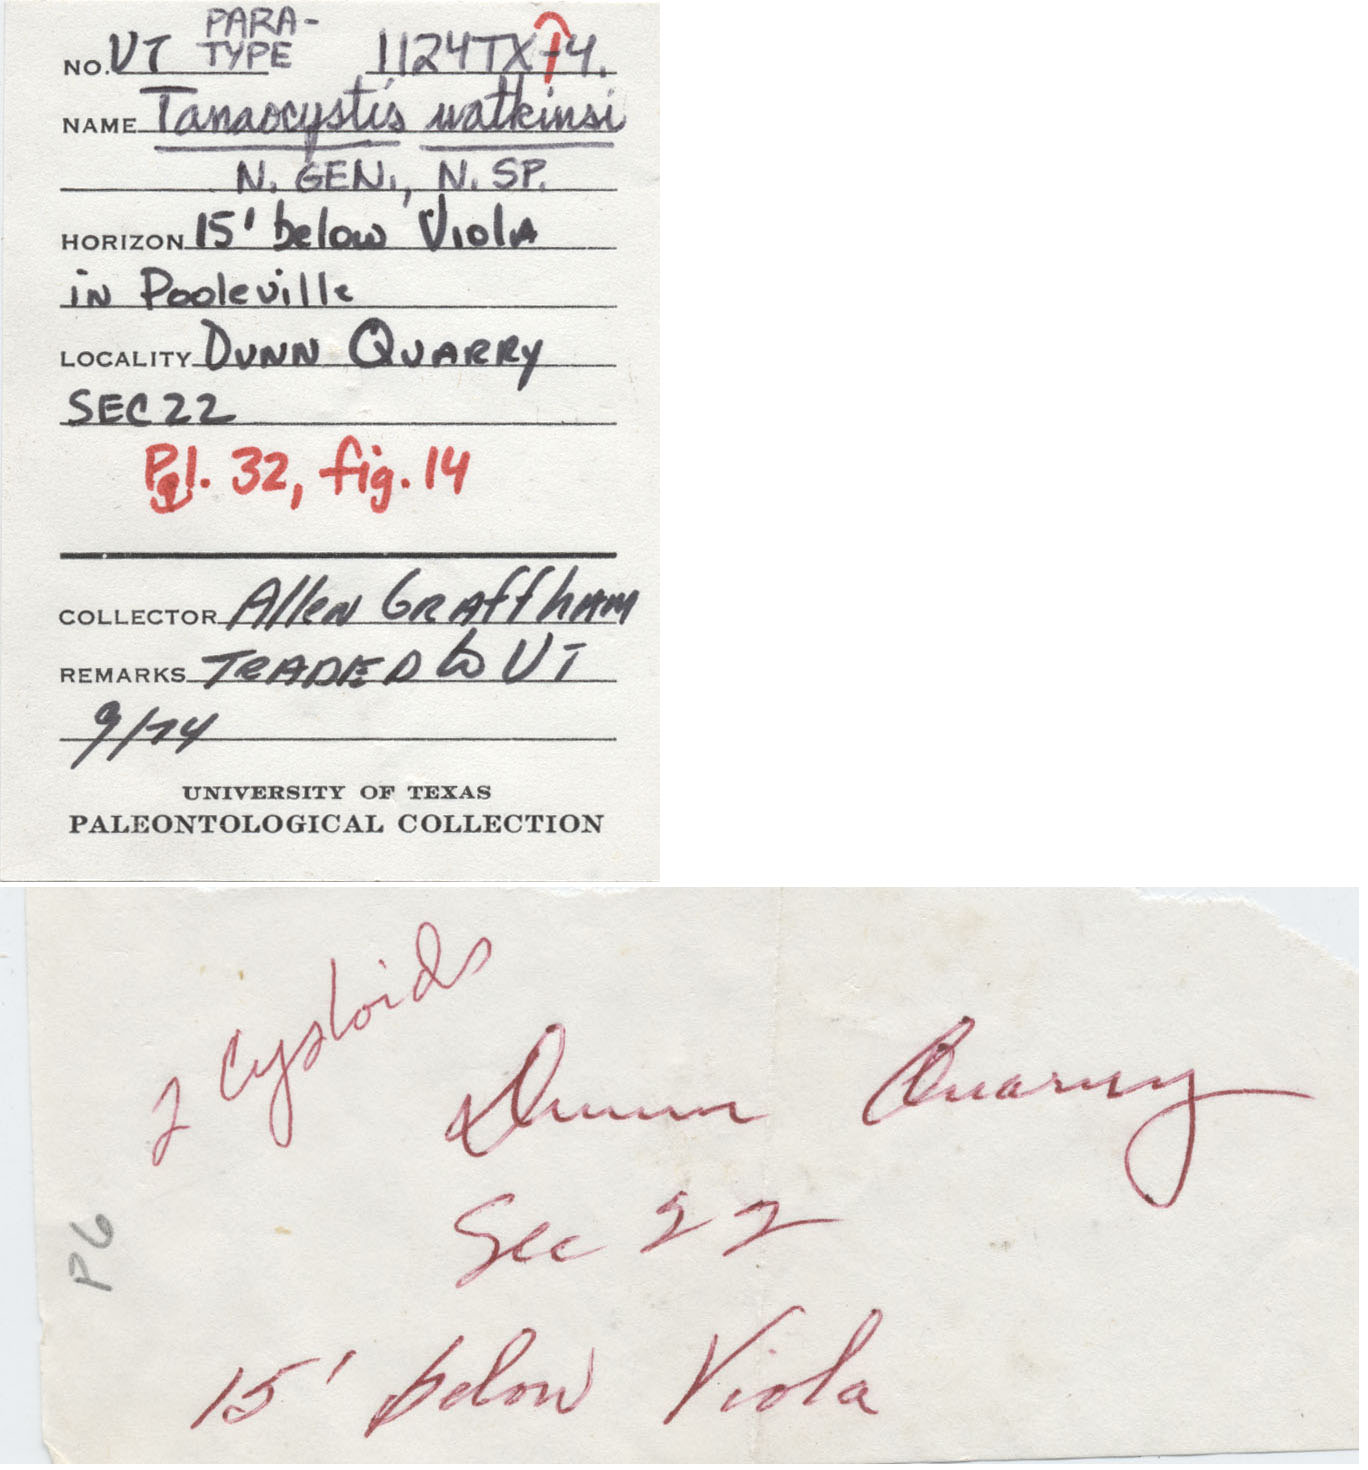 PARA-
NO. UT TYPE 1124TX74.
NAME Tanaocystis watkinsi
N. GEN., N. SP.
HORIZON 15' below Viola
in Pooleville
LOCALITY Dunn Quarry
SEC 22
Pl. 32, fig. 14
COLLECTOR Allen Graffham
REMARKS TRADED to UT
9/74
UNIVERSITY OF TEXAS
PALEONTOLOGICAL COLLECTION
2 Cystoids
Dunn Quarry
Sec 22
P6
15' below Viola